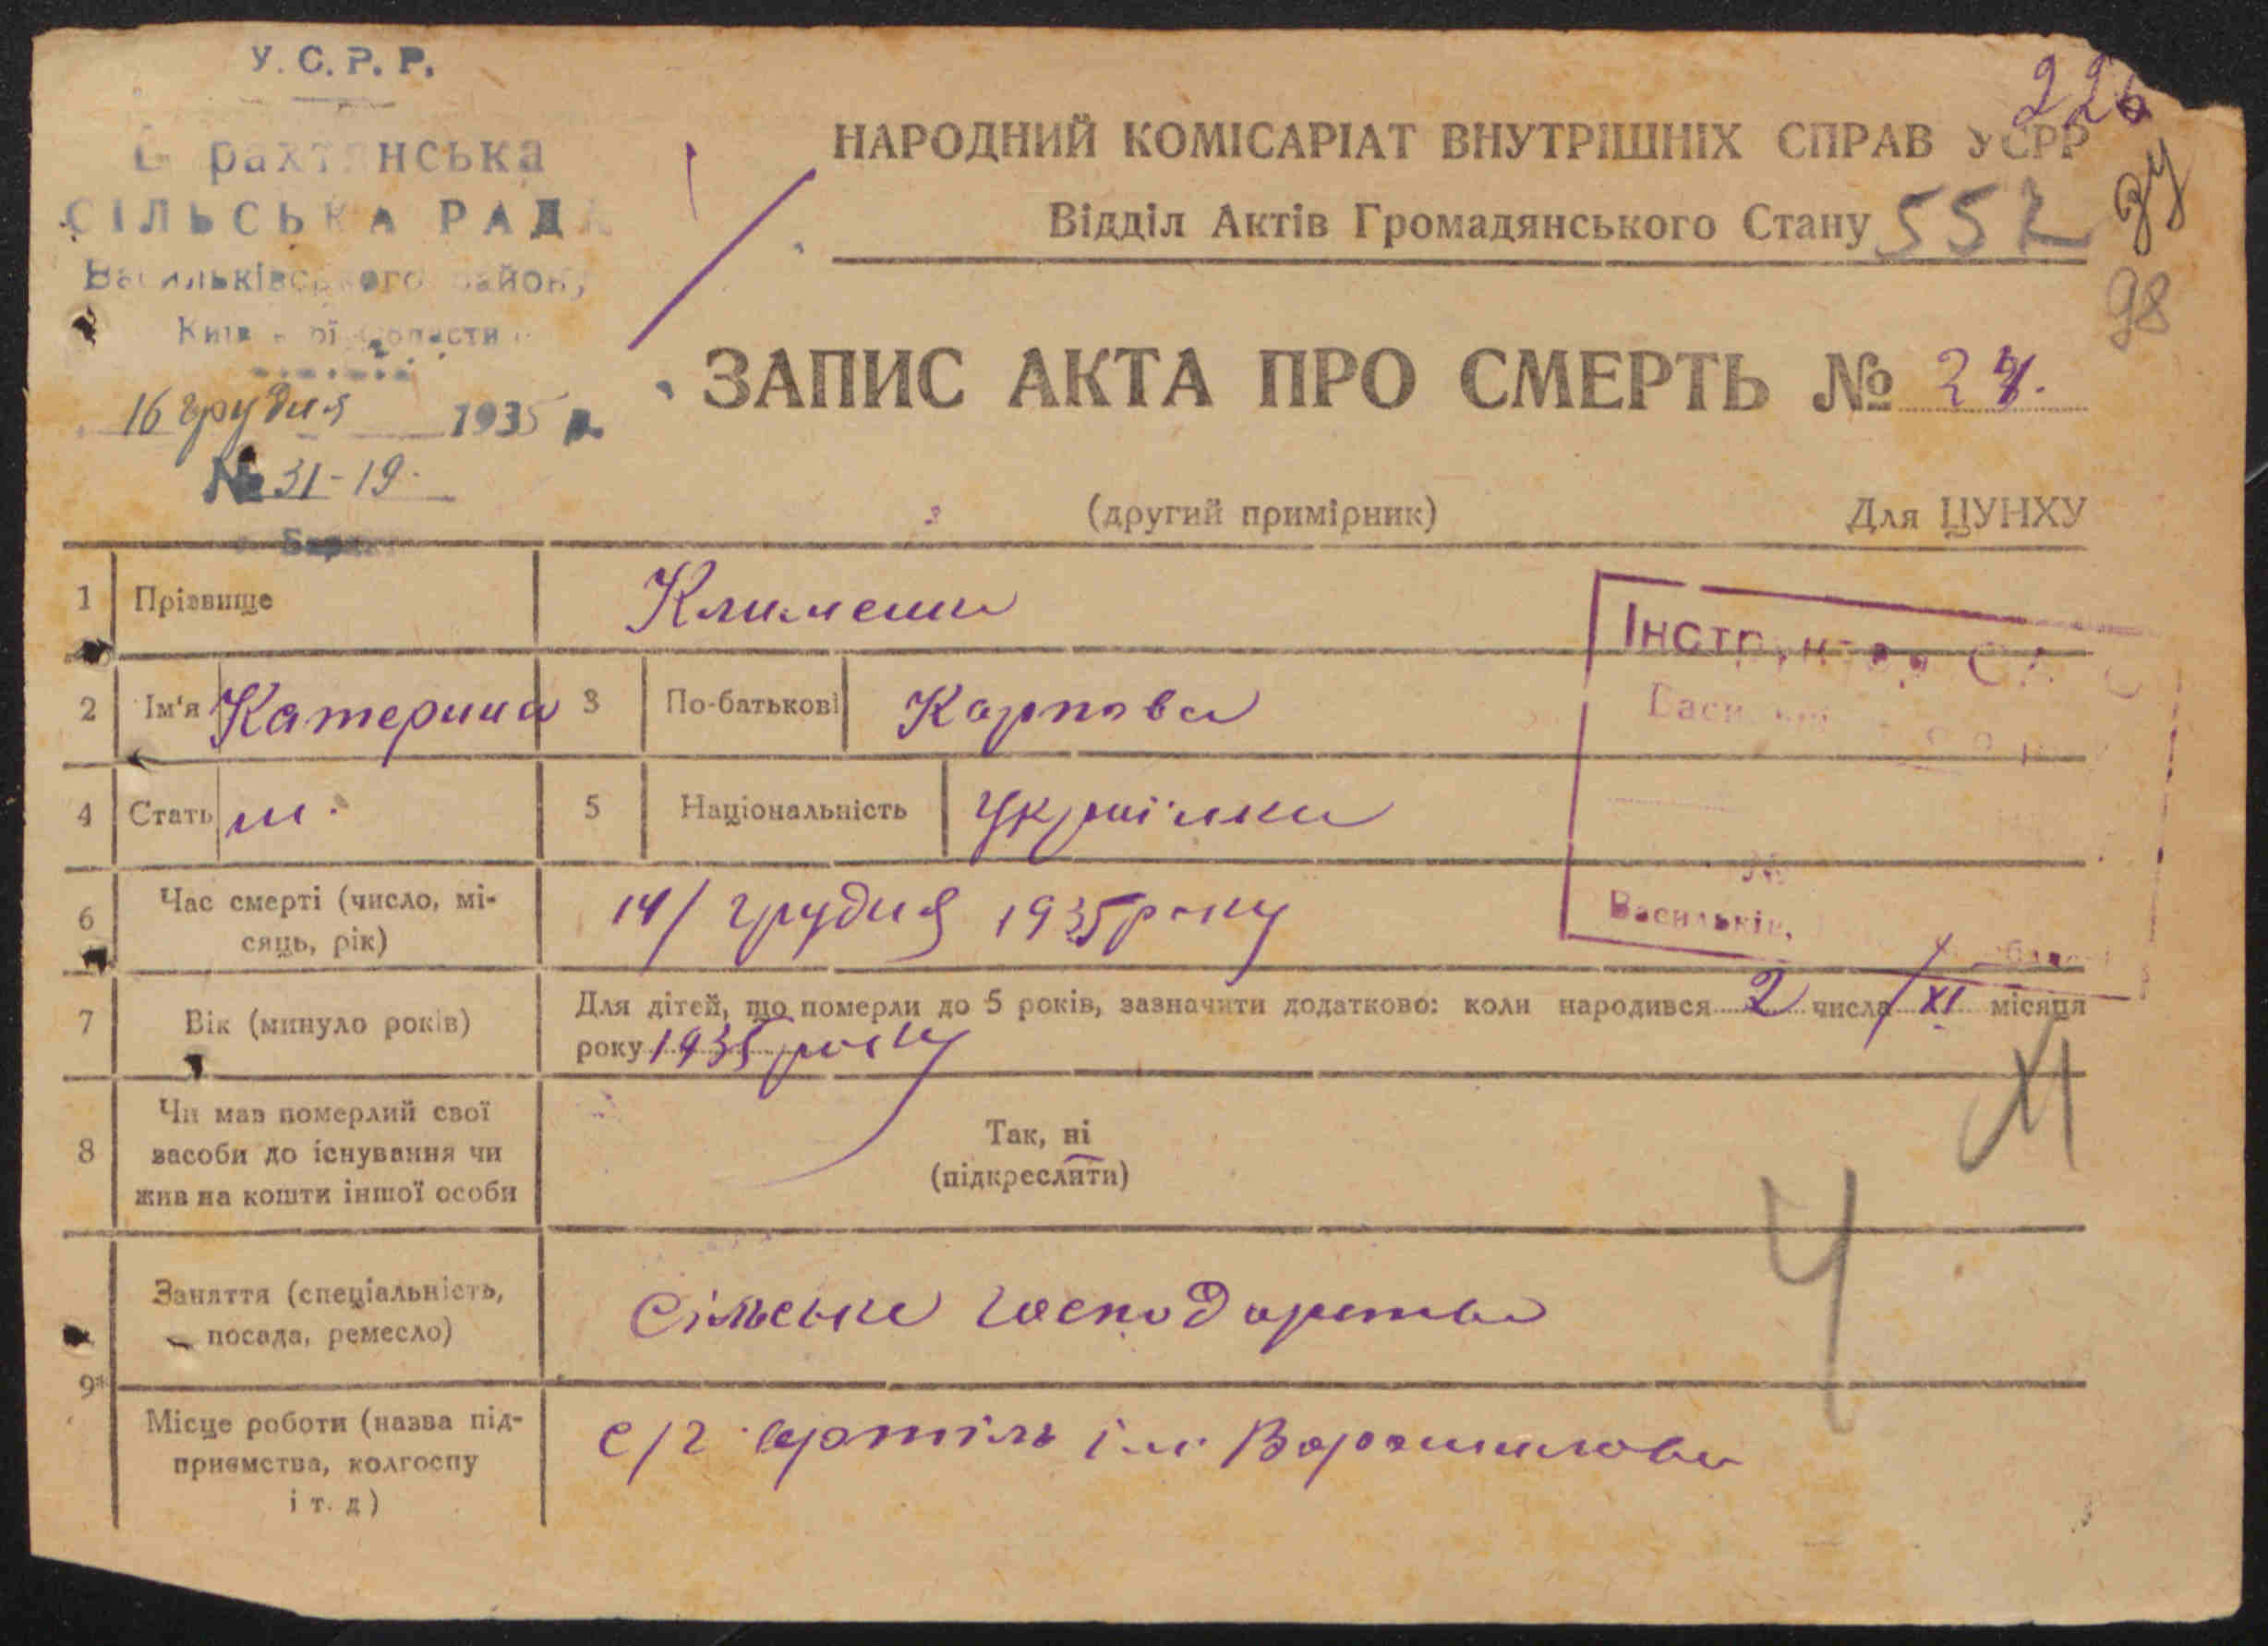 У. С. Р. Р.
СІЛЬСЬКА РАДА
16 грудня 1935 р.
№ 31-19.
226
НАРОДНИЙ КОМІСАРІАТ ВНУТРІШНІХ СПРАВ УСРР
Відділ Актів Громадянського Стану
98
ЗАПИС АКТА ПРО СМЕРТЬ №
(другий примірник) Для ЦУНХУ
1 Прізвище
2 Ім'я Катерина 3 По-батькові Карпова
4 Стать 5 Національність Українка
6 Час смерті (число, мі-
сяць, рік) 14/ грудня 1935 року
7 Вік (минуло років) Для дітей, що померли до 5 років, зазначити додатково: коли народився 2 числа XI місяця
року 1935 року
XI
8 Чи мав померлий свої
засоби до існування чи
жив на кошти іншої особи
Так, ні
(підкреслити)
Заняття (спеціальність,
посада, ремесло) Сільське господарство
Ч
9
Місце роботи (назва під-
приємства, колгоспу
і т. д) с/г артіль ім. Ворошилова
Інстр
Васильків,